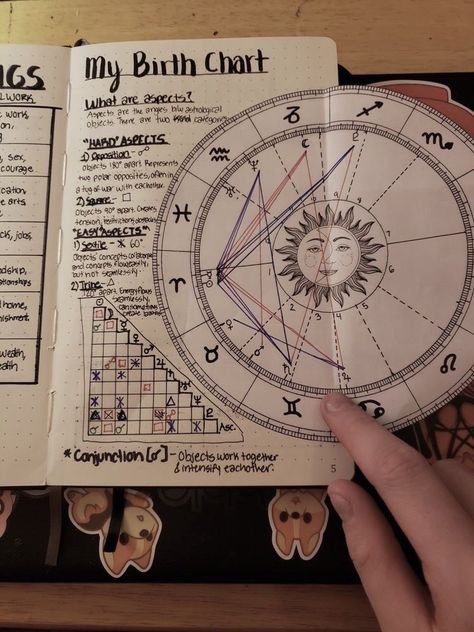 NGS
L WORK
work,
on,
, sex,
courage.
cation
arts
k, jobs,
ndship,
lationships
home,
nishment.
wealth,
ealth
My Birth Chart
What are aspects?
Aspects are the angles b/w astrological
objects. There are two kind categories
"HARD" ASPECTS
1) Opposition - ☍
Objects 180° apart. Represents
two polar opposities, often in
a tug of war with each other.
2) Square - □
Objects 90° apart. Creates
tension, restrictions,
"EASY ASPECTS"
1) Sextile - ⚹ 60°
Objects' concepts
and concepts flow easily,
but not seamlessly.
2) Trine - △
120° apart. Energy flows
seamlessly,
can sometimes
create
Asc.
* Conjunction [☌] - Objects work together
& intensify eachother.
5